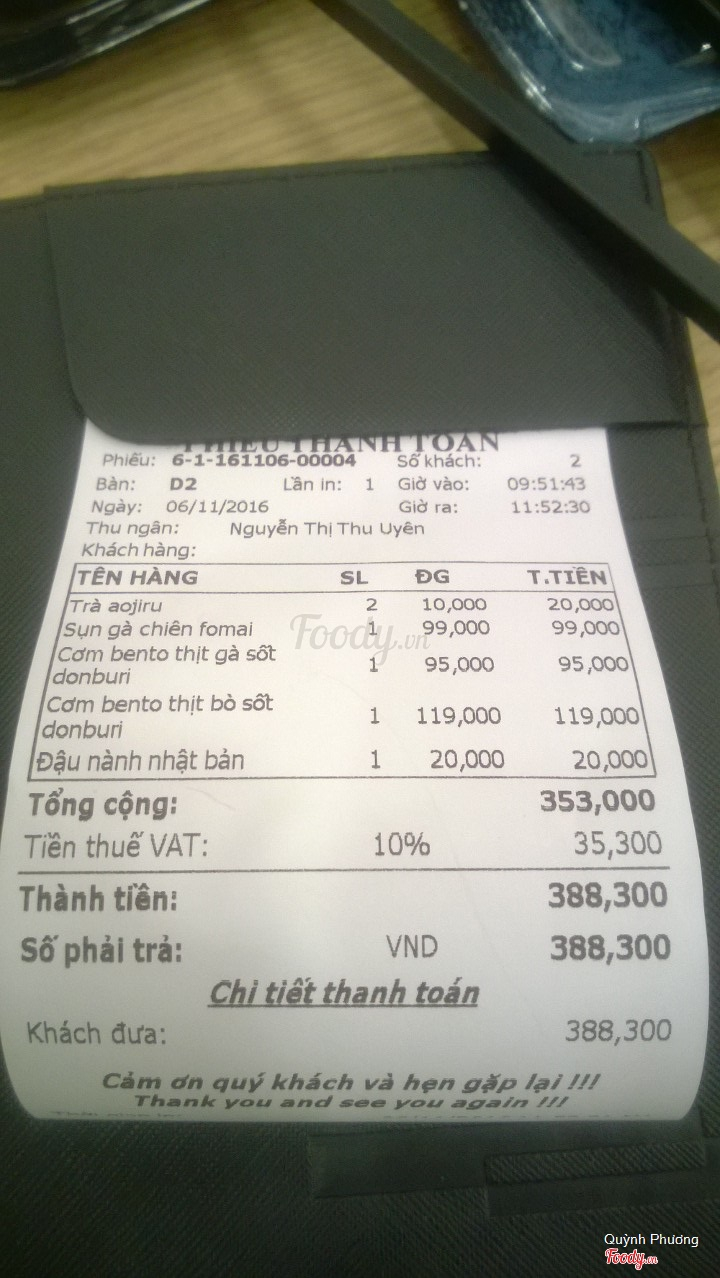 PHIẾU THANH TOÁN
Phiếu: 6-1-161106-00004 Số khách: 2
Bàn: D2 Lần in: 1 Giờ vào: 09:51:43
Ngày: 06/11/2016 Giờ ra: 11:52:30
Thu ngân: Nguyễn Thị Thu Uyên
Khách hàng:
TÊN HÀNG SL ĐG T.TIỀN
Trà aojiru 2 10,000 20,000
Sụn gà chiên fomai 1 99,000 99,000
Cơm bento thịt gà sốt
donburi 1 95,000 95,000
Cơm bento thịt bò sốt
donburi 1 119,000 119,000
Đậu nành nhật bản 1 20,000 20,000
Tổng cộng: 353,000
Tiền thuế VAT: 10% 35,300
Thành tiền: 388,300
Số phải trả: VND 388,300
Chi tiết thanh toán
Khách đưa: 388,300
Cảm ơn quý khách và hẹn gặp lại !!!
Thank you and see you again !!!
Foody.vn
Quỳnh Phương
Foody.vn